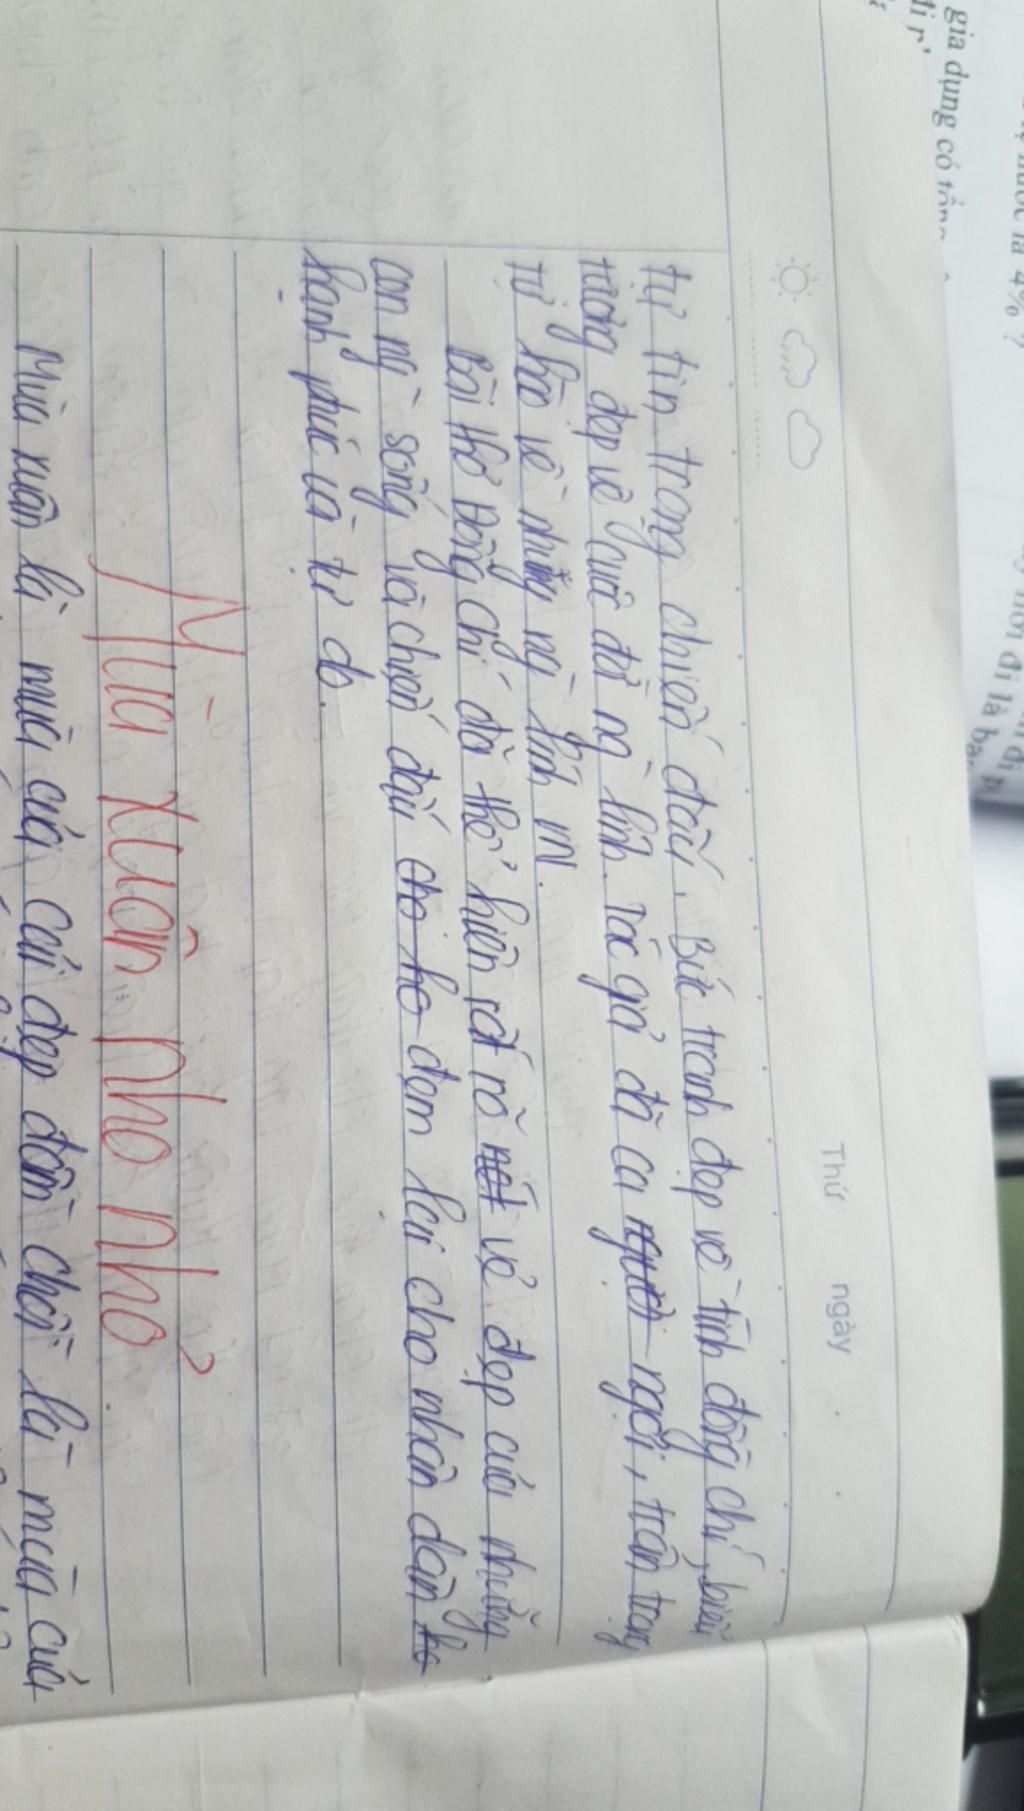 gia dụng có tổng
nước là 4% ?
Thứ ngày
tự tin trong chiến đấu. Bức tranh đẹp về tình đồng chí, biểu
tượng đẹp về cuộc đời ng` lính. Tác giả đã ca người ngợi, trân trọng
tự hào về những ng` lính VN.
Bài thơ Đồng chí đã thể hiện rất rõ nét vẻ đẹp của những
con ng` sống và chiến đấu cho ho đem lại cho nhân dân ho
hạnh phúc và tự do.
Mùa xuân nho nhỏ.
Mùa xuân là mùa của cái đẹp đâm chồi là mùa của